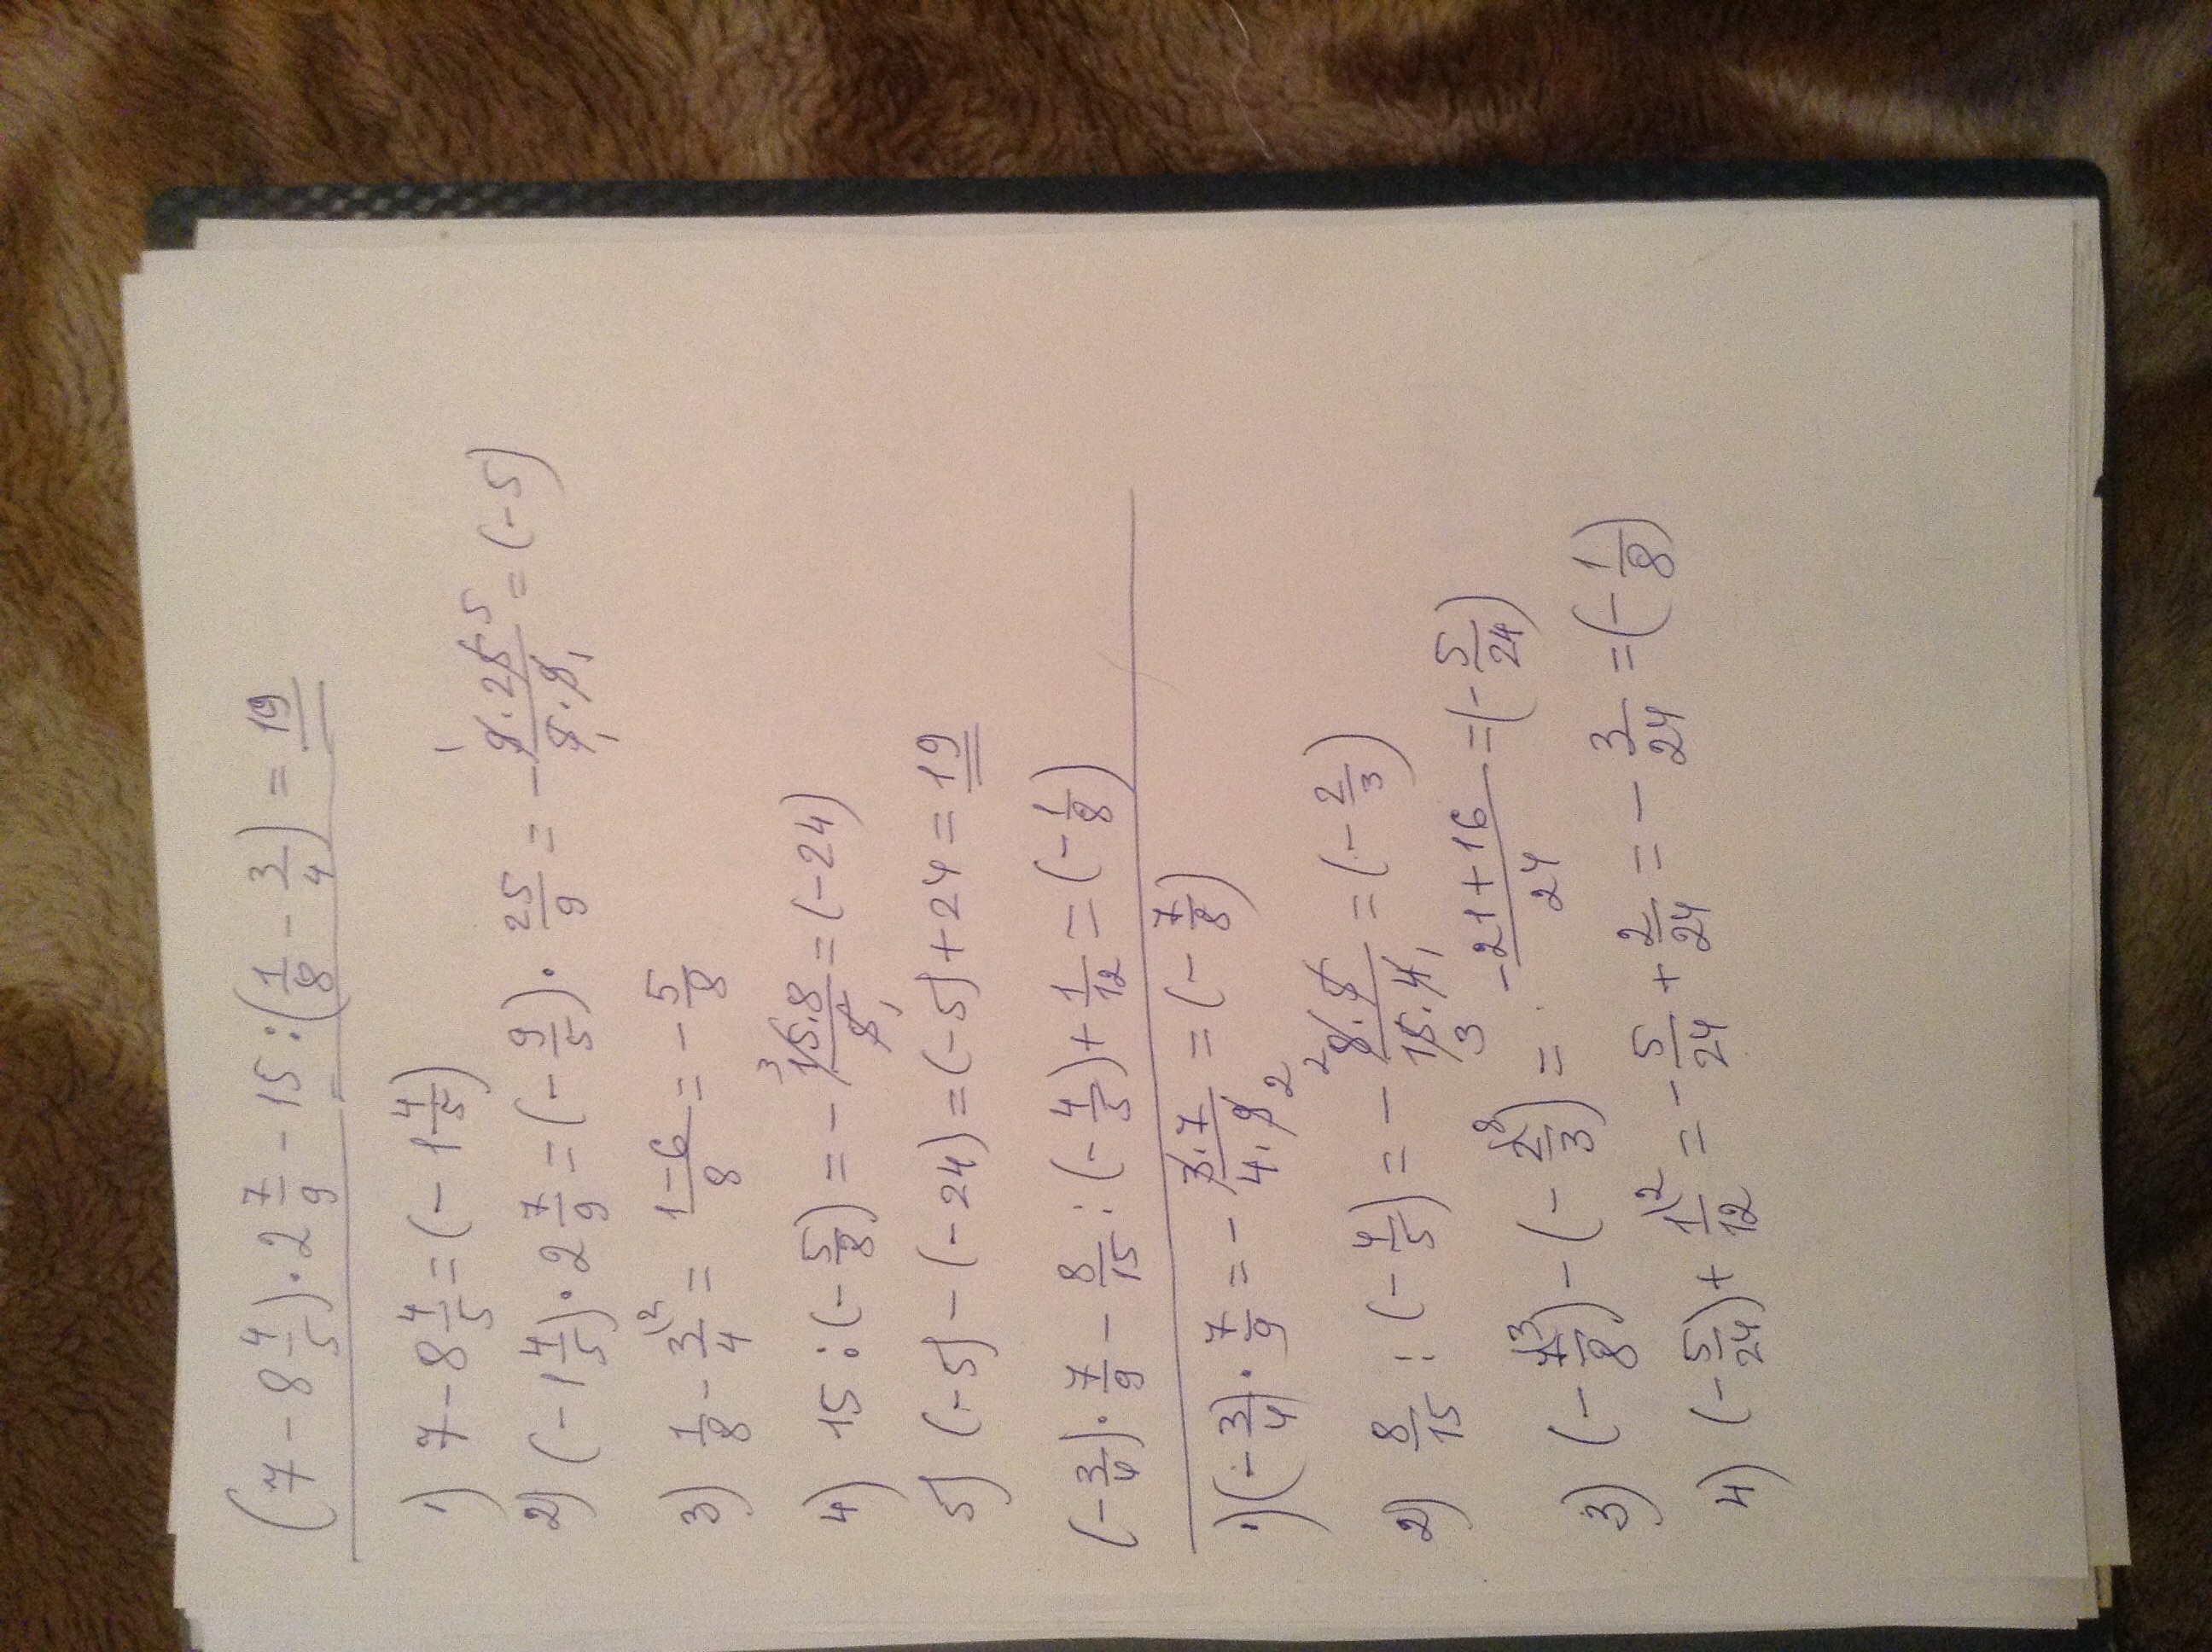 (7 - 8 4/5) · 2 7/9 - 15 : (1/8 - 3/4) = 19
1) 7 - 8 4/5 = (- 1 4/5)
2) (- 1 4/5) · 2 7/9 = (- 9/5) · 25/9 = - 9 · 25/5 · 9 = (-5)
3) 1/8 - 3/4 \2 = 1 - 6/8 = - 5/8
4) 15 : (- 5/8) = - 15 · 8/5 = (-24)
5) (-5) - (-24) = (-5) + 24 = 19
(- 3/4) · 7/9 - 8/15 : (- 4/5) + 1/12 = (- 1/8)
1) (- 3/4) · 7/9 = - 3 · 7/4 · 9 = (- 7/8)
2) 8/15 : (- 4/5) = - 8 · 5/15 · 4 = (- 2/3)
3) (- 7\3/8) - (- 2\8/3) = -21 + 16/24 = (- 5/24)
4) (- 5/24) + 1\2/12 = - 5/24 + 2/24 = - 3/24 = (- 1/8)